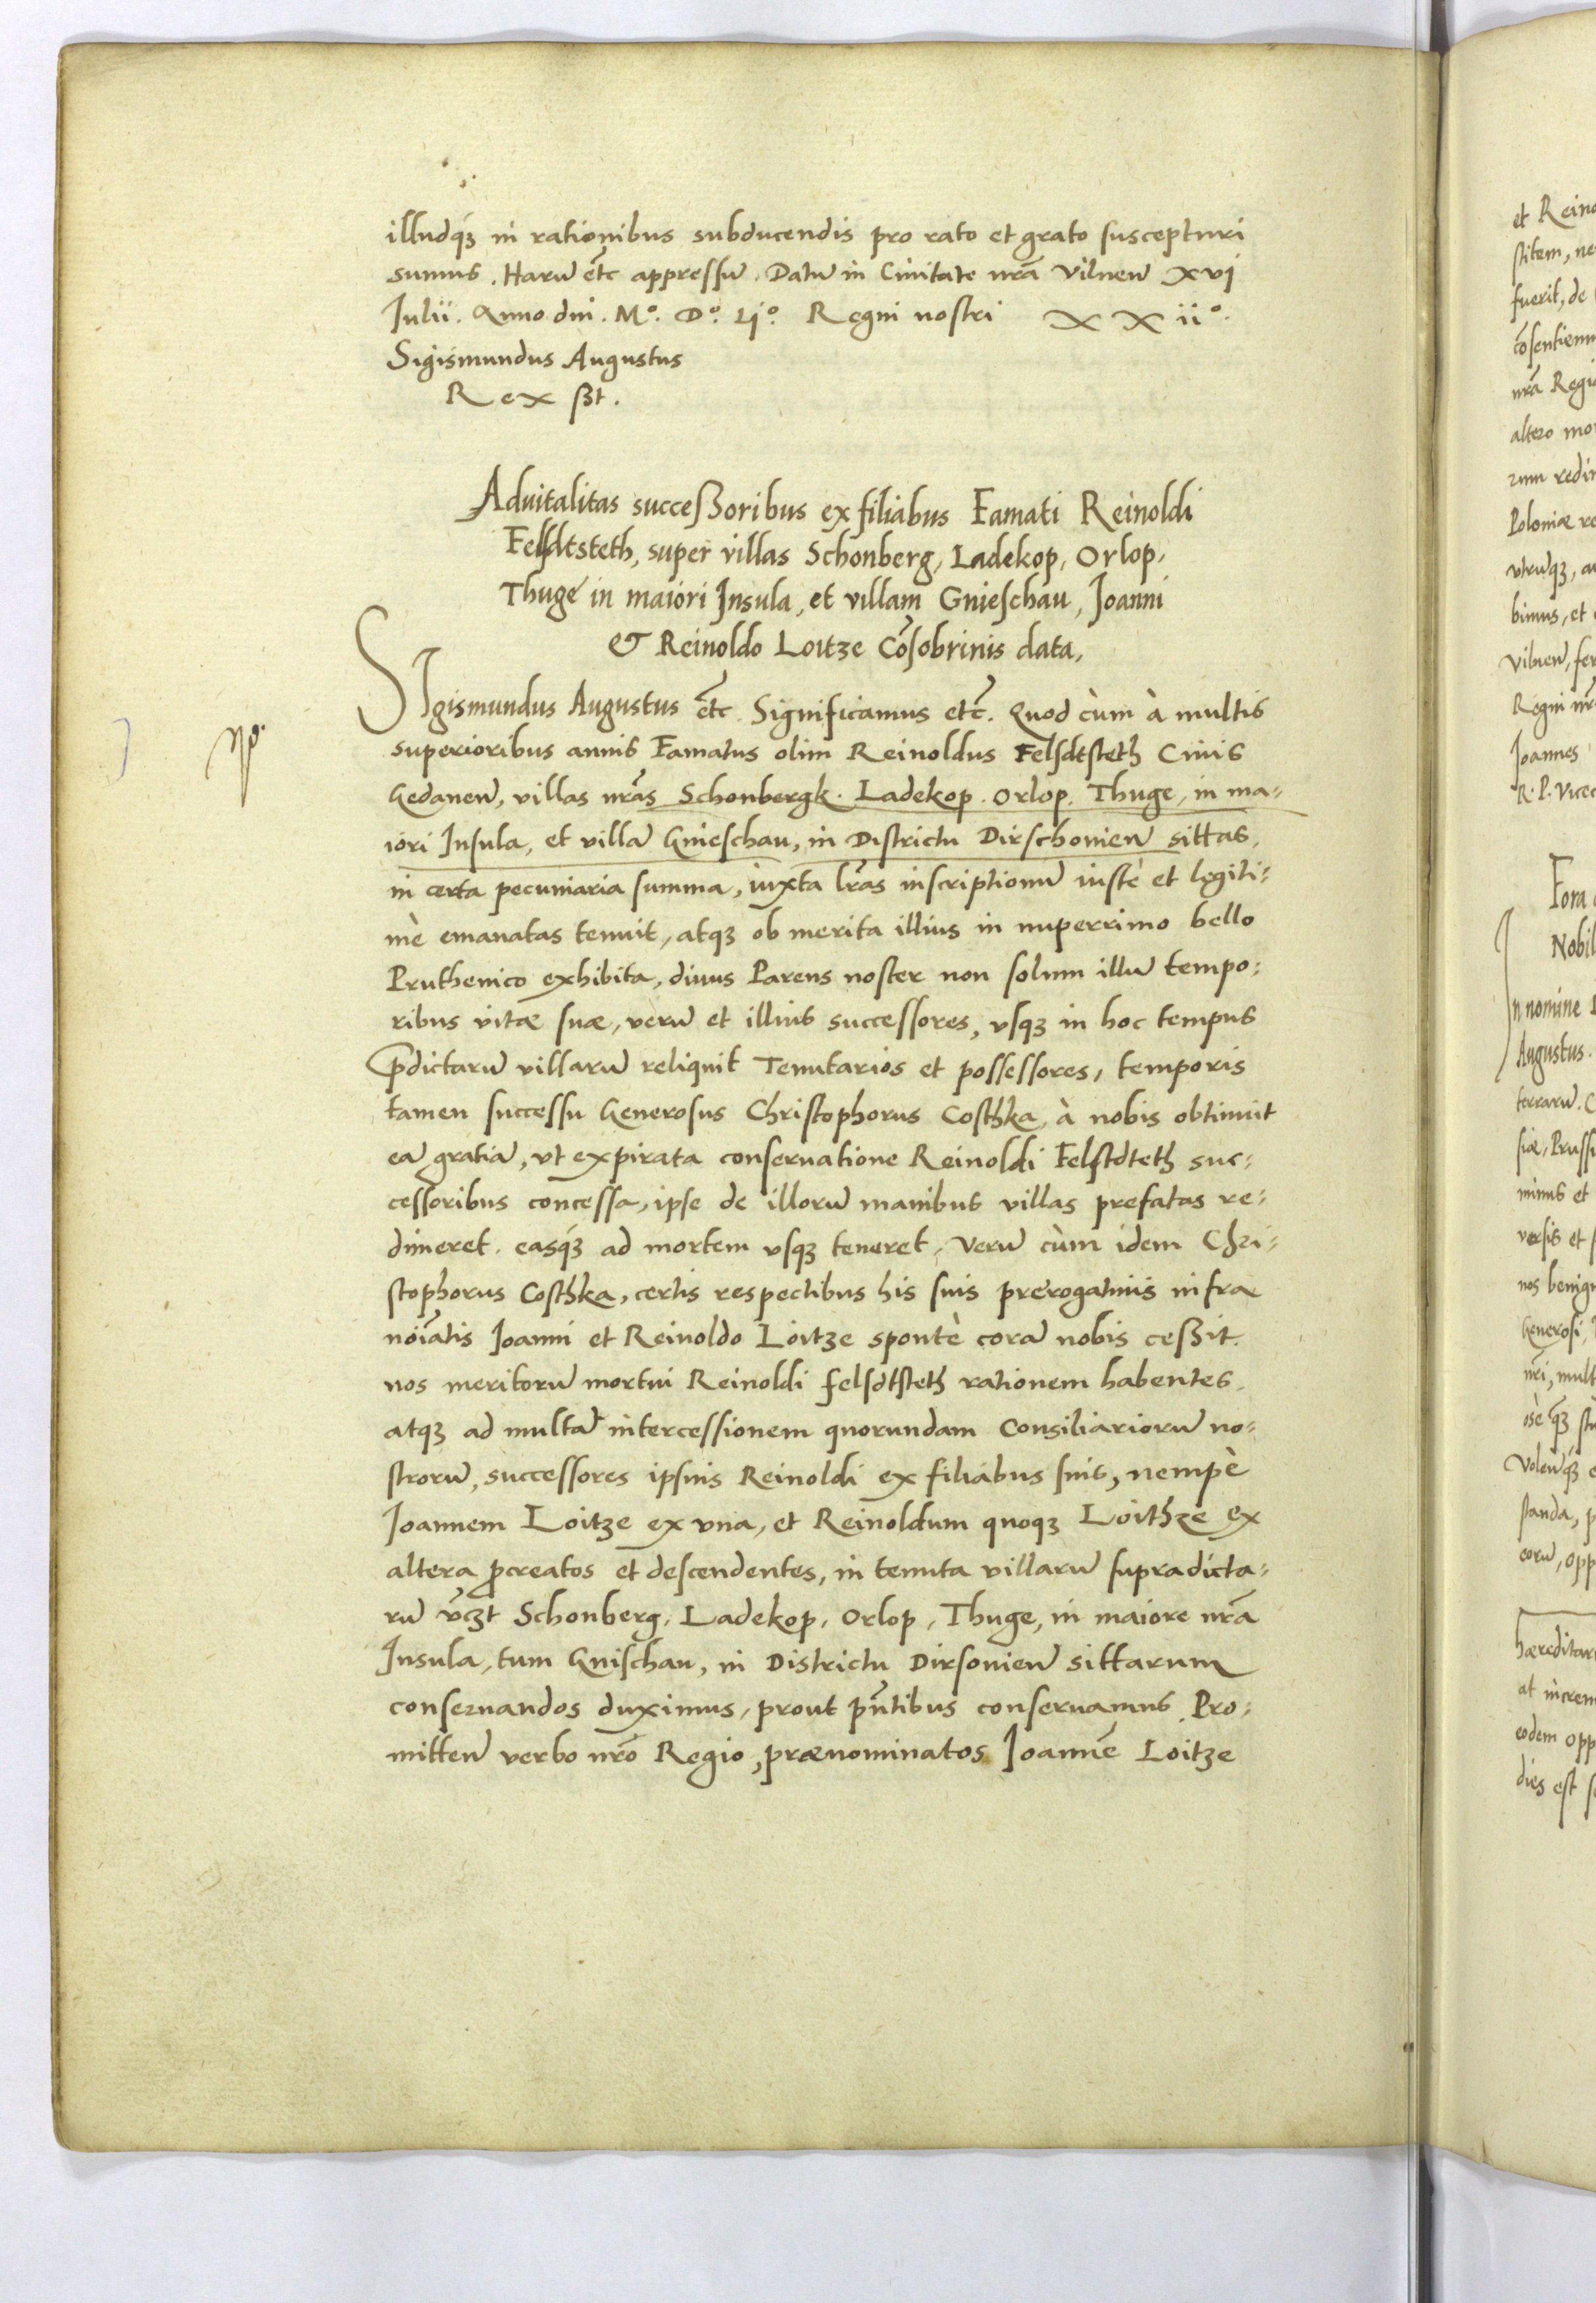 illudq́ʒ in rationibus subducendis pro rato et grato suscepturi
sumus. Harū etc̃ appressū. Datū in Ciuitate nrã Vilneñ xvj
Julii. Anno dni. Mº. Dº. Ljº. Regni nostri XXiiº.
Sigismundus Augustus
Rex ßt.
Aduitalitas succeßoribus ex filiabus Famati Reinoldi
Felsdtsteth, super villas Schonberg, Ladekop, Orlop,
Thuge in maiori Insula, et villam Gnieschau, Joanni
& Reinoldo Loitze Cõsobrinis data,
SIgismundus Augustus etc̃. Significamus etc̃. Quod cùm à multis
superioribus annis Famatus olim Reinoldus Felsdtsteth Ciuis
Gedaneñ, villas nrãs Schonbergk. Ladekop. Orlop. Thuge, in ma-
iori Insula, et villã Gnieschau, in Districtu Dirschonieñ sittas,
in certa pecuniaria summa, iuxta lrãs inscriptionū iustè et legiti-
mè emanatas tenuit, atqʒ ob merita illius in nuperrimo bello
Pruthenico exhibita, diuus Parens noster non solum illū tempo-
ribus vitæ suæ, verū et illius successores, vsqʒ in hoc tempus
p̃dictarū villarū reliquit Tenutarios et possessores, temporis
tamen successu Generosus Christophorus Costhka, à nobis obtinuit
eã gratiã, vt expirata conseruatione Reinoldi Felstdteth suc-
cessoribus concessa, ipse de illorū manibus villas prefatas re-
dimeret. easq́ʒ ad mortem vsqʒ teneret, Verū cùm idem Chri-
stophorus Costhka, certis respectibus his suis prerogatiuis infra
noĩatis Joanni et Reinoldo Loitze spontè corã nobis ceßit.
nos meritorū mortui Reinoldi felsdtsteth rationem habentes,
atqʒ ad multã intercessionem quorundam Consiliariorū no-
strorū, successores ipsius Reinoldi ex filiabus suis, nempè
Joannem Loitze ex vna, et Reinoldum quoqʒ Loithze ex
altera p̃creatos et descendentes, in tenuta villarū supradicta-
rū vc̃ʒt Schonberg, Ladekop, Orlop, Thuge, in maiore nrã
Insula, tum Gnischau, in Districtu Dirsonieñ sittarum
conseruandos duximus, prout pñtibus conseruamus. Pro-
mitteñ verbo nrõ Regio, prænominatos Joannẽ Loitze
et Rein
stitem, ne
fuerit, de
cõsentiem
nrã Regi
altero mo
rum redi
Poloniæ re
vtrūqʒ, a
bimus, et
Vilneñ, fer
Regni nrĩ
Joannes
R. P. Vicec
Fora
Nobil
In nomine
Augustus.
terrarū. C
siæ, Prussi
minus et
versis et
nos benig
Generosi,
nrĩ, mult
osè qʒ st
Volenq́ʒ e
standa, p
eorū, opp
hæreditar
at increm
eodem opp
dies est s